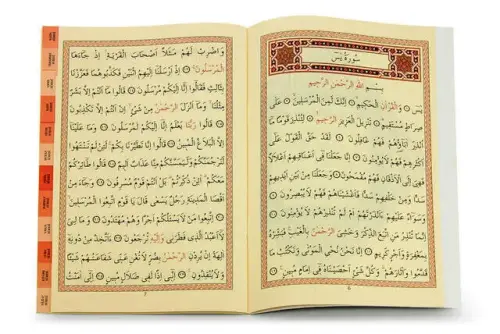 سُورَةُ يٰسٓ
بِسْمِ اللّٰهِ الرَّحْمٰنِ الرَّحِيمِ
يٰسٓ ۝ وَالْقُرْاٰنِ الْحَكِيمِ ۝ اِنَّكَ لَمِنَ الْمُرْسَلِينَ ۝ عَلٰى
صِرَاطٍ مُسْتَقِيمٍ ۝ تَنْزِيلَ الْعَزِيزِ الرَّحِيمِ ۝ لِتُنْذِرَ قَوْمًا مَٓا
اُنْذِرَ اٰبَٓاؤُهُمْ فَهُمْ غَافِلُونَ ۝ لَقَدْ حَقَّ الْقَوْلُ عَلٰٓى
اَكْثَرِهِمْ فَهُمْ لَا يُؤْمِنُونَ ۝ اِنَّا جَعَلْنَا فِٓى اَعْنَاقِهِمْ
اَغْلَالًا فَهِىَ اِلَى الْاَذْقَانِ فَهُمْ مُقْمَحُونَ ۝ وَجَعَلْنَا مِنْ بَيْنِ
اَيْدِيهِمْ سَدًّا وَمِنْ خَلْفِهِمْ سَدًّا فَاَغْشَيْنَاهُمْ فَهُمْ لَا يُبْصِرُونَ
۝ وَسَوَٓاءٌ عَلَيْهِمْ ءَاَنْذَرْتَهُمْ اَمْ لَمْ تُنْذِرْهُمْ لَا يُؤْمِنُونَ ۝
اِنَّمَا تُنْذِرُ مَنِ اتَّبَعَ الذِّكْرَ وَخَشِىَ الرَّحْمٰنَ بِالْغَيْبِ فَبَشِّرْهُ
بِمَغْفِرَةٍ وَاَجْرٍ كَرِيمٍ ۝ اِنَّا نَحْنُ نُحْىِ الْمَوْتٰى وَنَكْتُبُ مَا
قَدَّمُوا وَاٰثَارَهُمْ وَكُلَّ شَىْءٍ اَحْصَيْنَاهُ فِٓى اِمَامٍ مُبِينٍ ۝
٦
وَاضْرِبْ لَهُمْ مَثَلًا اَصْحَابَ الْقَرْيَةِ اِذْ جَٓاءَهَا
الْمُرْسَلُونَ ۝ اِذْ اَرْسَلْنَٓا اِلَيْهِمُ اثْنَيْنِ فَكَذَّبُوهُمَا فَعَزَّزْنَا
بِثَالِثٍ فَقَالُٓوا اِنَّٓا اِلَيْكُمْ مُرْسَلُونَ ۝ قَالُوا مَٓا اَنْتُمْ اِلَّا بَشَرٌ
مِثْلُنَا وَمَٓا اَنْزَلَ الرَّحْمٰنُ مِنْ شَىْءٍ اِنْ اَنْتُمْ اِلَّا تَكْذِبُونَ
۝ قَالُوا رَبُّنَا يَعْلَمُ اِنَّٓا اِلَيْكُمْ لَمُرْسَلُونَ ۝ وَمَا عَلَيْنَٓا
اِلَّا الْبَلَاغُ الْمُبِينُ ۝ قَالُٓوا اِنَّا تَطَيَّرْنَا بِكُمْ لَئِنْ لَمْ تَنْتَهُوا
لَنَرْجُمَنَّكُمْ وَلَيَمَسَّنَّكُمْ مِنَّا عَذَابٌ اَلِيمٌ ۝ قَالُوا طَٓائِرُكُمْ
مَعَكُمْ اَئِنْ ذُكِّرْتُمْ بَلْ اَنْتُمْ قَوْمٌ مُسْرِفُونَ ۝ وَجَٓاءَ مِنْ
اَقْصَا الْمَدِينَةِ رَجُلٌ يَسْعٰى قَالَ يَا قَوْمِ اتَّبِعُوا الْمُرْسَلِينَ
۝ اِتَّبِعُوا مَنْ لَا يَسْئَلُكُمْ اَجْرًا وَهُمْ مُهْتَدُونَ ۝ وَمَا لِىَ
لَٓا اَعْبُدُ الَّذِى فَطَرَنِى وَاِلَيْهِ تُرْجَعُونَ ۝ ءَاَتَّخِذُ مِنْ دُونِهِٓ
اٰلِهَةً اِنْ يُرِدْنِ الرَّحْمٰنُ بِضُرٍّ لَا تُغْنِ عَنِّى شَفَاعَتُهُمْ شَيْئًا
وَلَا يُنْقِذُونِ ۝ اِنِّٓى اِذًا لَفِى ضَلَالٍ مُبِينٍ ۝ اِنِّٓى اٰمَنْتُ
٧